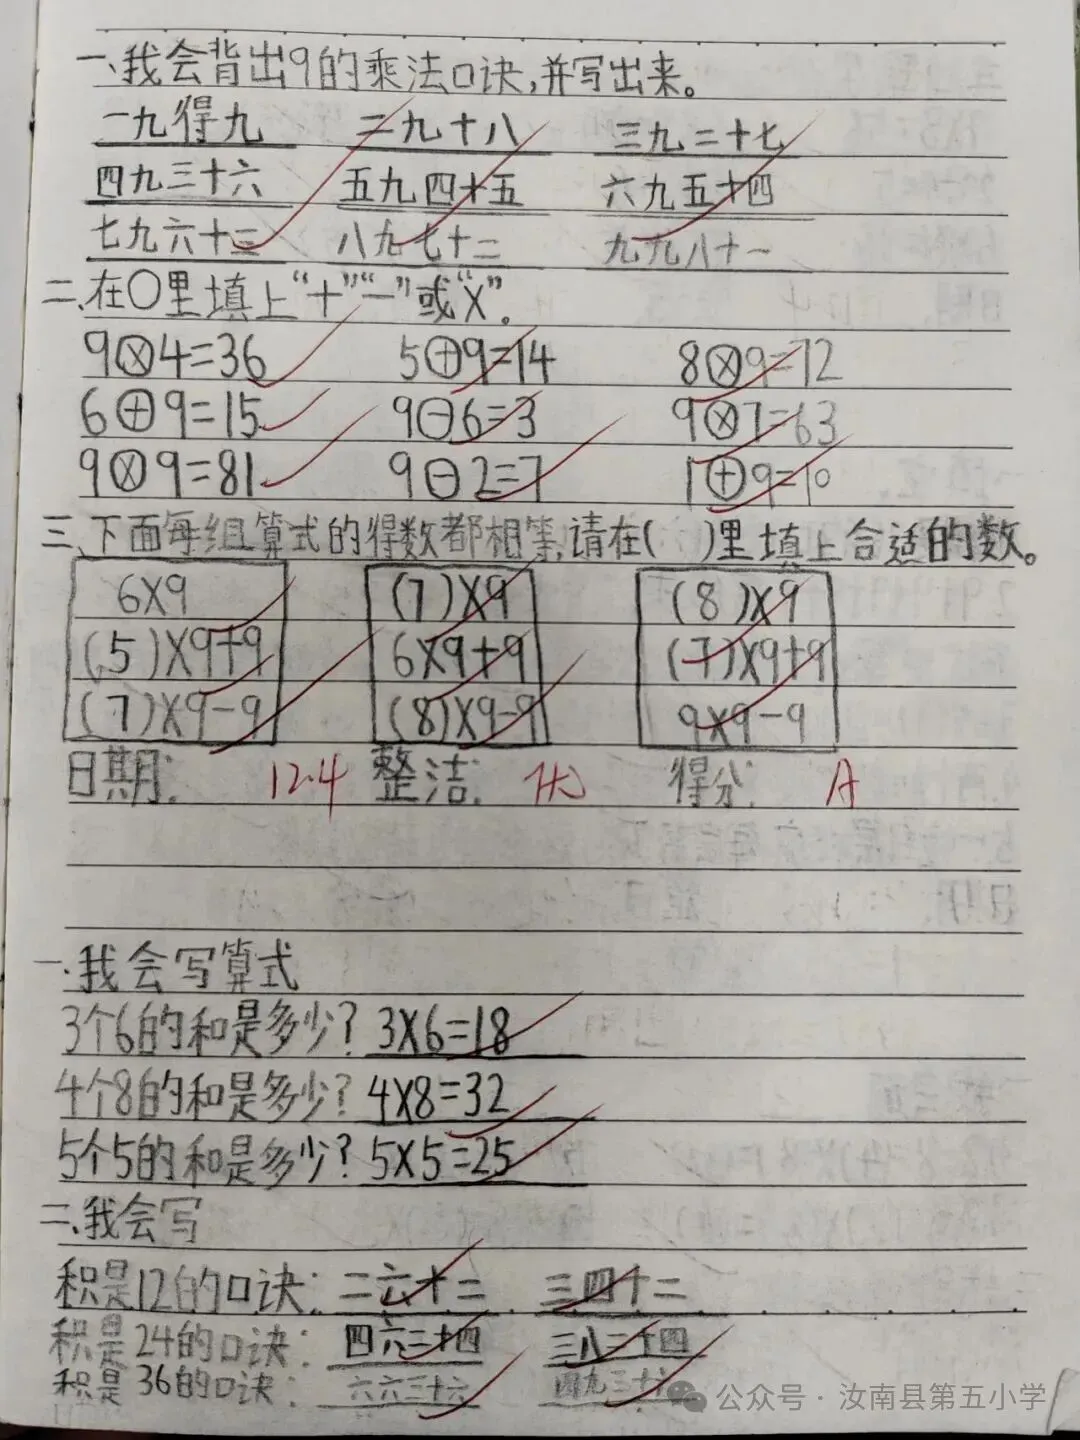 一、我会背出9的乘法口诀,并写出来。
一九得九 二九十八 三九二十七
四九三十六 五九四十五 六九五十四
七九六十三 八九七十二 九九八十一
二、在○里填上“+”“-”或“×”。
9⊗4=36 5⊕9=14 8⊗9=72
6⊕9=15 9⊖6=3 9⊗7=63
9⊗9=81 9⊖2=7 1⊕9=10
三、下面每组算式的得数都相等,请在( )里填上合适的数。
6×9 (7)×9 (8)×9
(5)×9+9 6×9+9 (7)×9+9
(7)×9-9 (8)×9-9 9×9-9
日期: 12.4 整洁: 优 得分: A
一、我会写算式
3个6的和是多少? 3×6=18
4个8的和是多少? 4×8=32
5个5的和是多少? 5×5=25
二、我会写
积是12的口诀: 二六十二 三四十二
积是24的口诀: 四六二十四 三八二十四
积是36的口诀: 六六三十六 四九三十六
公众号·汝南县第五小学